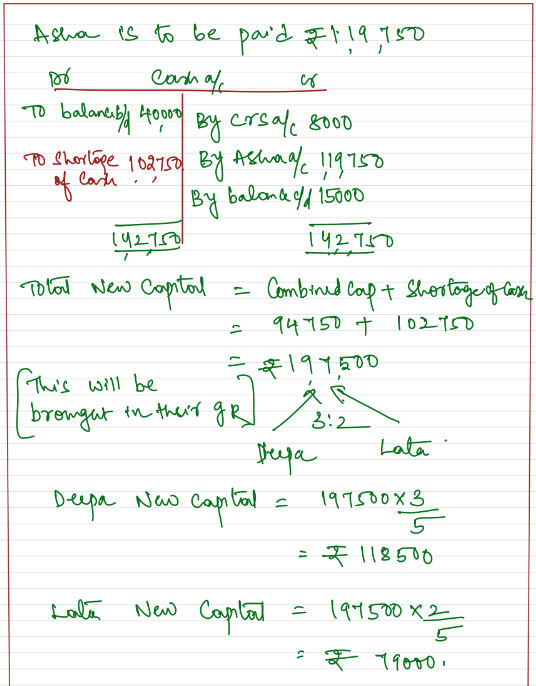 Asha is to be paid ₹ 1,19,750
Dr Cash a/c cr
To balance b/d 40,000 By Crs a/c 8000
To Shortage of Cash 102750 By Asha a/c 119750
By balance c/d 15000
142750 142750
Total New Capital = Combined Cap + Shortage of Cash
= 94750 + 102750
= ₹ 197,500
[This will be
brought in their gR] 3:2
Deepa Lata
Deepa New Capital = 197500 × 3
5
= ₹ 118500
Lata New Capital = 197500 × 2
5
= ₹ 79000.